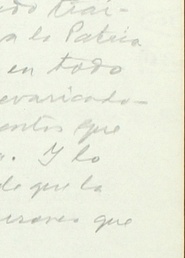 ido trai-
a la Patria
en todo
evaricado-
entos que
. Y lo
de que la
que